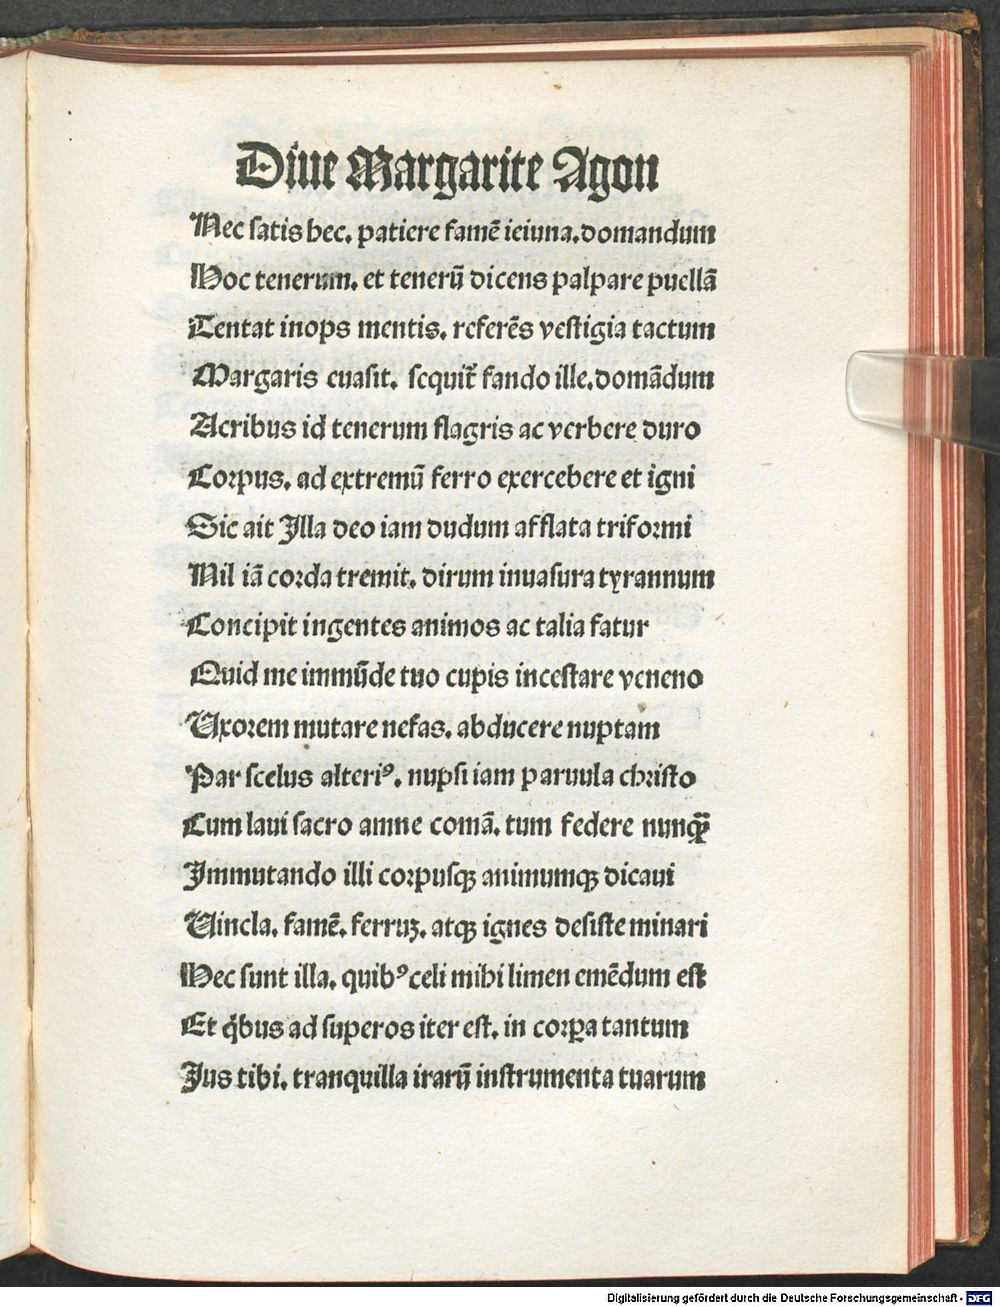 Diue Margarite Agon
Nec satis hec. patiere famē ieiuna. domandum
Hoc tenerum. et tenerū dicens palpare puellā
Tentat inops mentis. referēs vestigia tactum
Margaris euasit. sequit᷑ fando ille. domādum
Acribus id tenerum flagris ac verbere duro
Corpus. ad extremū ferro exercebere et igni
Sic ait Illa deo iam dudum afflata triformi
Nil iā corda tremit. dirum inuasura tyrannum
Concipit ingentes animos ac talia fatur
Quid me immūde tuo cupis incestare veneno
Uxorem mutare nefas. abducere nuptam
Par scelus alteriꝰ. nupsi iam paruula christo
Cum laui sacro amne comā. tum federe nunqꝫ̄
Immutando illi corpusqꝫ animumqꝫ dicaui
Uincla. famē. ferruꝫ. atqꝫ ignes desiste minari
Hec sunt illa. quibꝰ celi mihi limen emēdum est
Et q̇bus ad superos iter est. in corꝑa tantum
Jus tibi. tranquilla irarū instrumenta tuarum
Digitalisierung gefördert durch die Deutsche Forschungsgemeinschaft - DFG